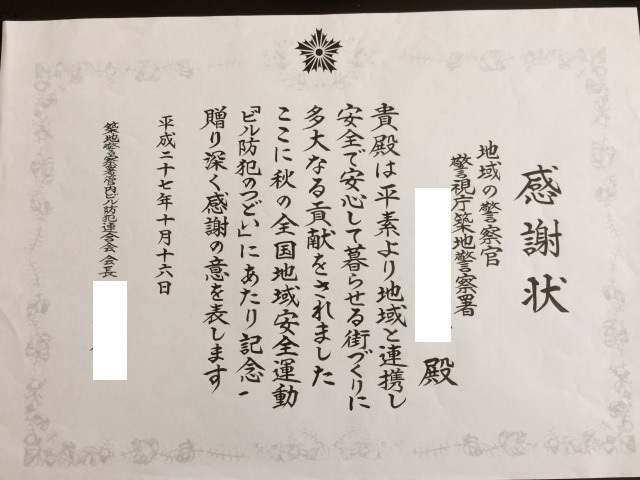 感謝状
地域の警察官
警視庁築地警察署
殿
貴殿は平素より地域と連携し
安全で安心して暮らせる街づくりに
多大なる貢献をされました
ここに秋の全国地域安全運動
『ビル防犯のつどい』にあたり記念
贈り深く感謝の意を表します
平成二十七年十月十六日
築地警察署管内ビル防犯連合会 会長